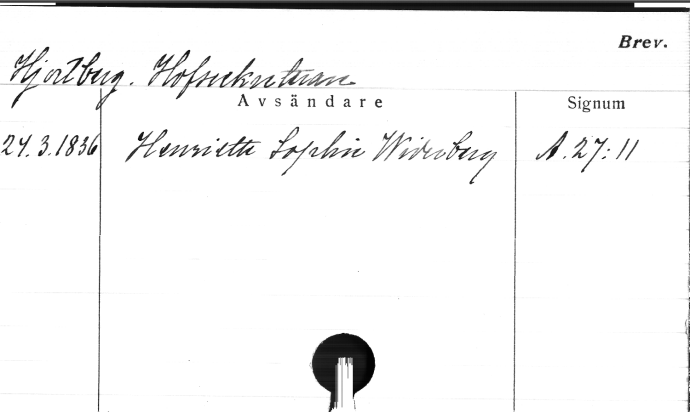 Brev.
Hjortberg. Hofsekreterare
Avsändare Signum
24.3.1836 Henriette Sophie Widerberg A.27:11